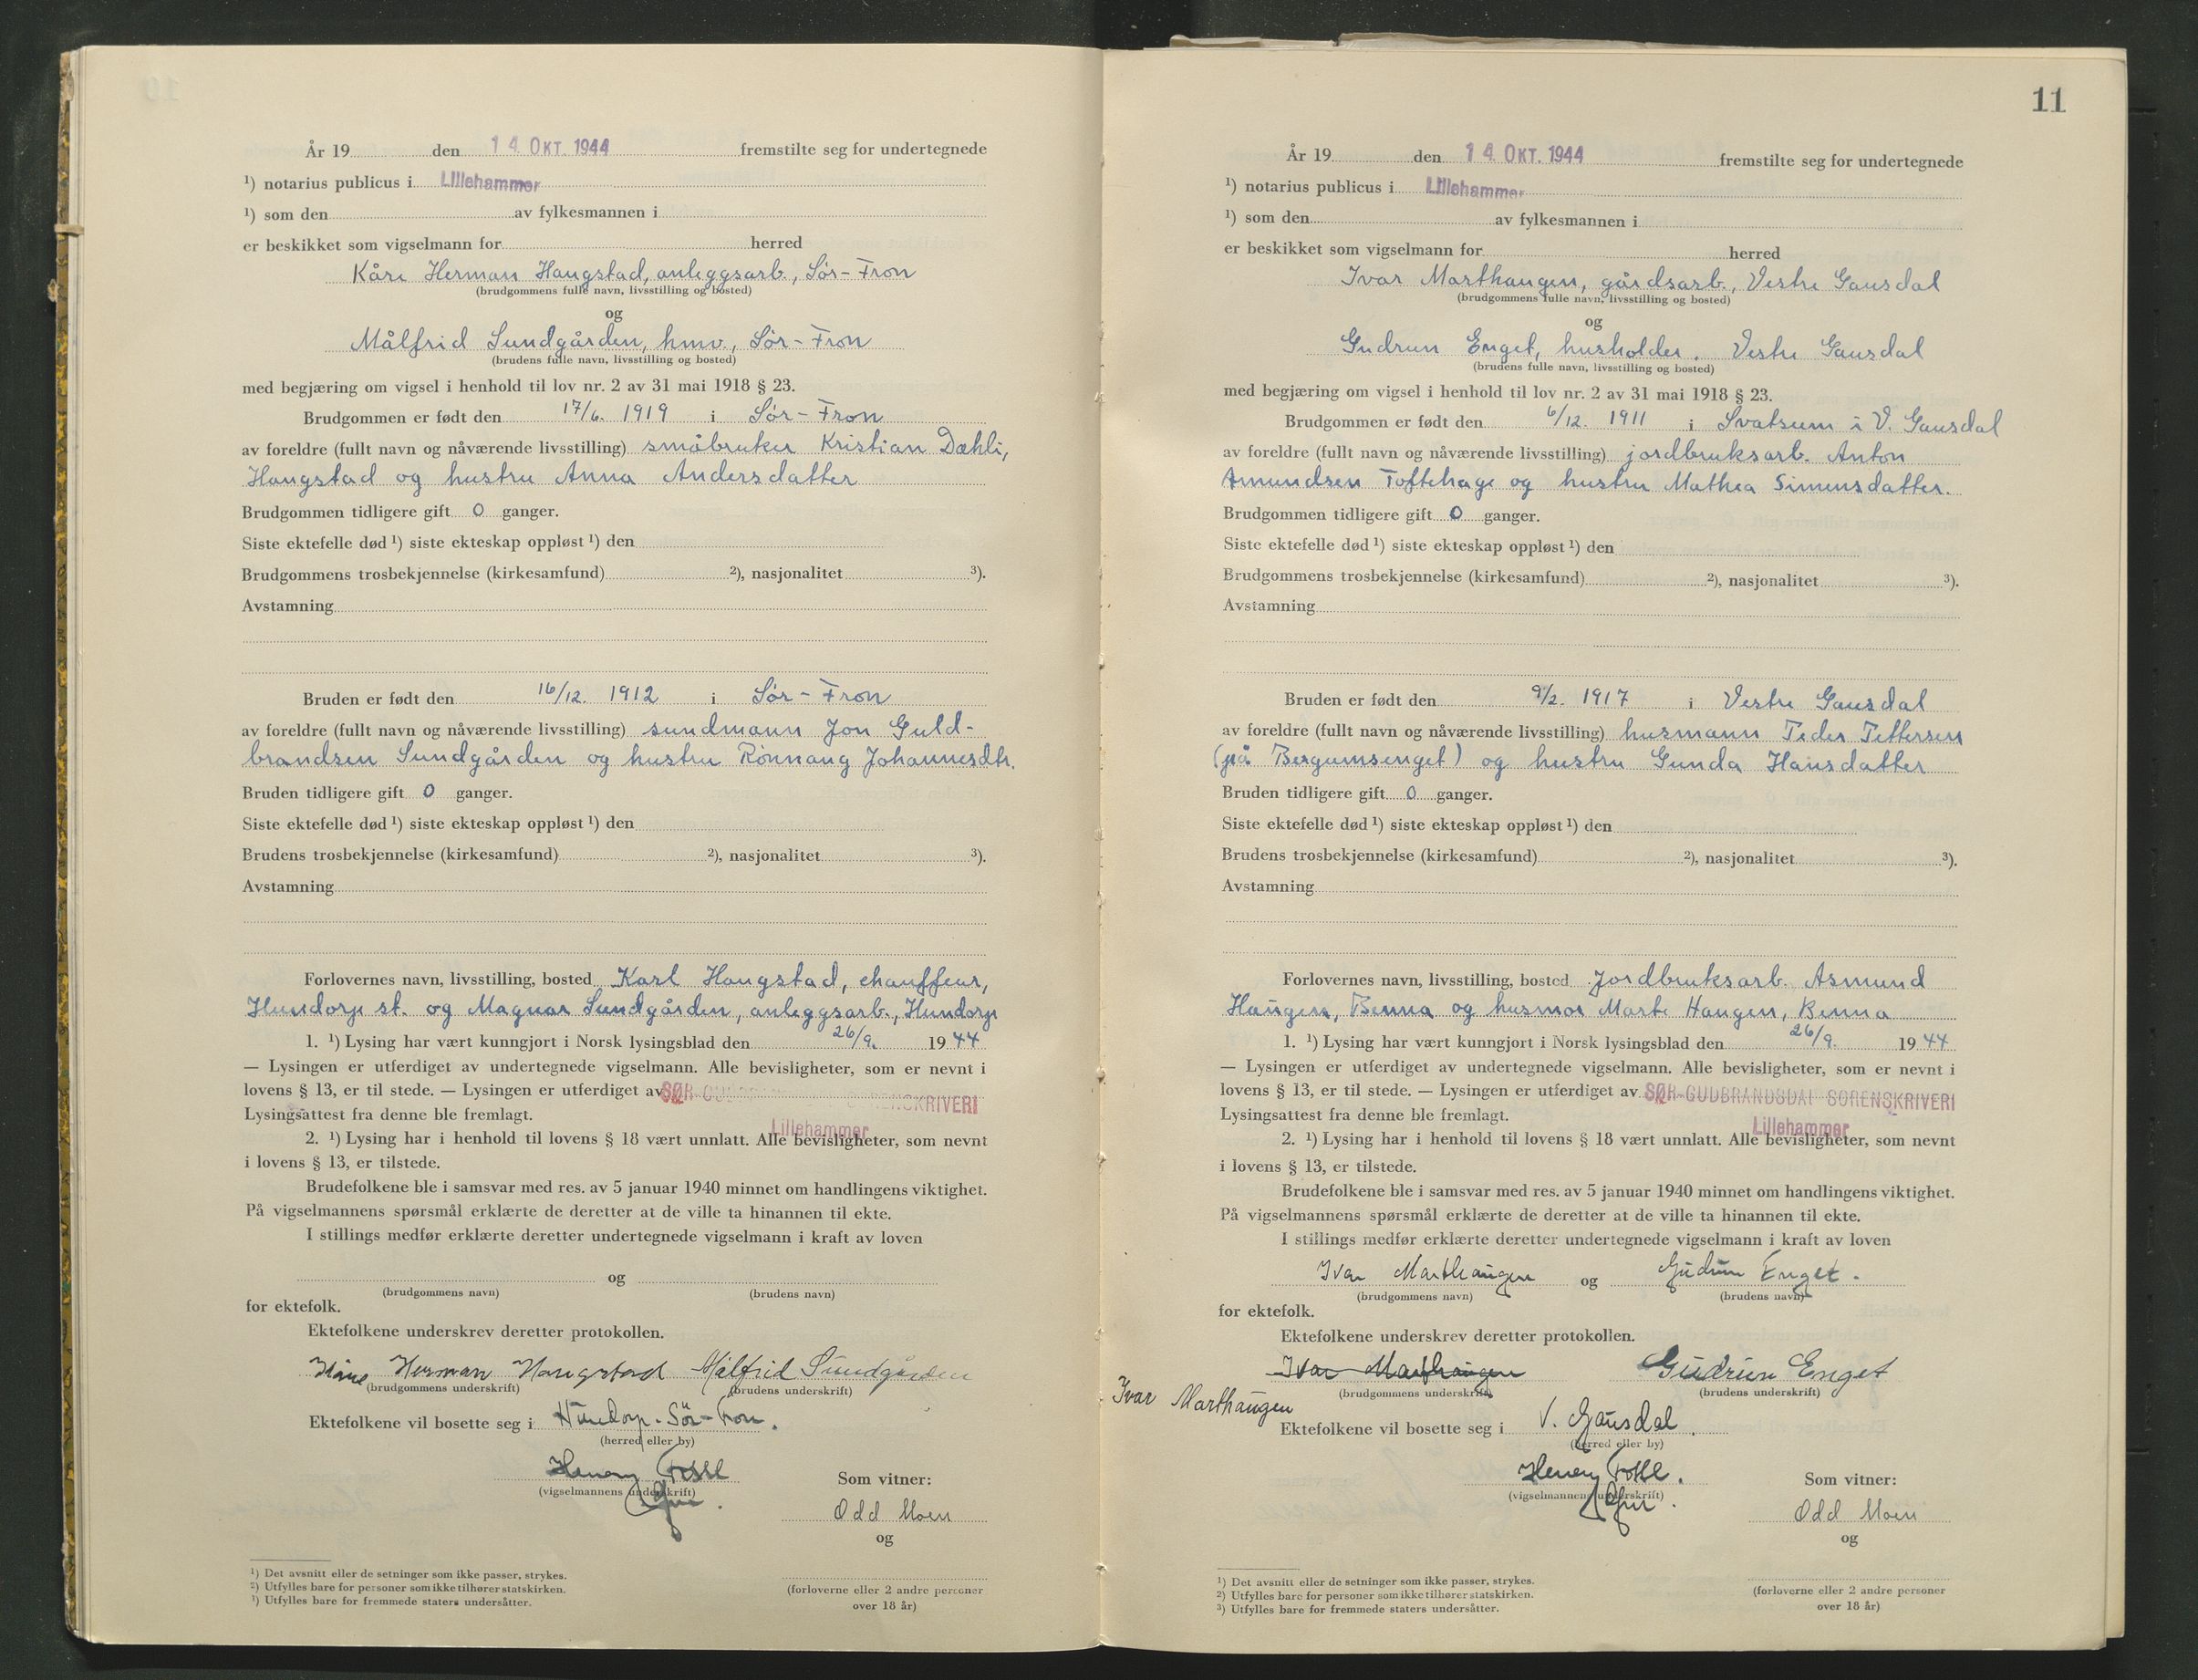 År 19 den 14 OKT. 1944 fremstilte seg for undertegnede
¹) notarius publicus i Lillehammer
¹) som den av fylkesmannen i
er beskikket som vigselmann for herred
Kåre Herman Haugstad, anleggsarb., Sör-Fron
(brudgommens fulle navn, livsstilling og bosted)
og
Målfrid Sundgården, hmv., Sör-Fron
(brudens fulle navn, livsstilling og bosted)
med begjæring om vigsel i henhold til lov nr. 2 av 31 mai 1918 § 23.
Brudgommen er født den 17/6. 1919 i Sör-Fron
av foreldre (fullt navn og nåværende livsstilling) småbruker Kristian Dæhli,
Haugstad og hustru Anna Andersdatter
Brudgommen tidligere gift 0 ganger.
Siste ektefelle død ¹) siste ekteskap oppløst ¹) den
Brudgommens trosbekjennelse (kirkesamfund) ²), nasjonalitet ³).
Avstamning
Bruden er født den 16/12. 1912 i Sör-Fron
av foreldre (fullt navn og nåværende livsstilling) sundmann Jon Guld-
brandsen Sundgården og hustru Rönnaug Johannesdtr.
Bruden tidligere gift 0 ganger.
Siste ektefelle død ¹) siste ekteskap oppløst ¹) den
Brudens trosbekjennelse (kirkesamfund) ²), nasjonalitet ³).
Avstamning
Forlovernes navn, livsstilling, bosted Karl Haugstad, chauffeur,
Hundorp st. og Magnar Sundgården, anleggsarb., Hundorp
1. ¹) Lysing har vært kunngjort i Norsk lysingsblad den 26/9. 1944
— Lysingen er utferdiget av undertegnede vigselmann. Alle bevisligheter, som er nevnt i
lovens § 13, er til stede. — Lysingen er utferdiget av SØR-GUDBRANDSDAL SORENSKRIVERI
Lysingsattest fra denne ble fremlagt.
Lillehammer
2. ¹) Lysing har i henhold til lovens § 18 vært unnlatt. Alle bevisligheter, som nevnt
i lovens § 13, er tilstede.
Brudefolkene ble i samsvar med res. av 5 januar 1940 minnet om handlingens viktighet.
På vigselmannens spørsmål erklærte de deretter at de ville ta hinannen til ekte.
I stillings medfør erklærte deretter undertegnede vigselmann i kraft av loven
og
(brudgommens navn) (brudens navn)
for ektefolk.
Ektefolkene underskrev deretter protokollen.
Kåre Herman Haugstad Målfrid Sundgården
(brudgommens underskrift) (brudens underskrift)
Ektefolkene vil bosette seg i Hundorp. Sör-Fron.
(herred eller by)
Henry
(vigselmannens underskrift)
Som vitner:
Odd Moen
og
(forloverne eller 2 andre personer
over 18 år)
¹) Det avsnitt eller de setninger som ikke passer, strykes.
²) Utfylles bare for personer som ikke tilhører statskirken.
³) Utfylles bare for fremmede staters undersåtter.
11
År 19 den 14 OKT. 1944 fremstilte seg for undertegnede
¹) notarius publicus i Lillehammer
¹) som den av fylkesmannen i
er beskikket som vigselmann for herred
Ivar Marthaugen, gårdsarb., Vestre Gausdal
(brudgommens fulle navn, livsstilling og bosted)
og
Gudrun Enget, husholder. Vestre Gausdal
(brudens fulle navn, livsstilling og bosted)
med begjæring om vigsel i henhold til lov nr. 2 av 31 mai 1918 § 23.
Brudgommen er født den 6/12. 1911 i Svatsum i V. Gausdal
av foreldre (fullt navn og nåværende livsstilling) jordbruksarb. Anton
Amundsen Toftehage og hustru Mathea Simensdatter.
Brudgommen tidligere gift 0 ganger.
Siste ektefelle død ¹) siste ekteskap oppløst ¹) den
Brudgommens trosbekjennelse (kirkesamfund) ²), nasjonalitet ³).
Avstamning
Bruden er født den 9/2. 1917 i Vestre Gausdal
av foreldre (fullt navn og nåværende livsstilling) husmann Peder Pettersen
(på Bergumsenget) og hustru Gunda Hansdatter
Bruden tidligere gift 0 ganger.
Siste ektefelle død ¹) siste ekteskap oppløst ¹) den
Brudens trosbekjennelse (kirkesamfund) ²), nasjonalitet ³).
Avstamning
Forlovernes navn, livsstilling, bosted Jordbruksarb. Asmund
Haugen, Benna og husmor Marte Haugen, Benna
1. ¹) Lysing har vært kunngjort i Norsk lysingsblad den 26/9. 1944
— Lysingen er utferdiget av undertegnede vigselmann. Alle bevisligheter, som er nevnt i
lovens § 13, er til stede. — Lysingen er utferdiget av SØR-GUDBRANDSDAL SORENSKRIVERI
Lysingsattest fra denne ble fremlagt.
Lillehammer
2. ¹) Lysing har i henhold til lovens § 18 vært unnlatt. Alle bevisligheter, som nevnt
i lovens § 13, er tilstede.
Brudefolkene ble i samsvar med res. av 5 januar 1940 minnet om handlingens viktighet.
På vigselmannens spørsmål erklærte de deretter at de ville ta hinannen til ekte.
I stillings medfør erklærte deretter undertegnede vigselmann i kraft av loven
Ivar Marthaugen og Gudrun Enget.
(brudgommens navn) (brudens navn)
for ektefolk.
Ektefolkene underskrev deretter protokollen.
Ivar Marthaugen Gudrun Enget
(brudgommens underskrift) (brudens underskrift)
Ivar Marthaugen
Ektefolkene vil bosette seg i V. Gausdal.
(herred eller by)
Henry
(vigselmannens underskrift)
Som vitner:
Odd Moen
og
(forloverne eller 2 andre personer
over 18 år)
¹) Det avsnitt eller de setninger som ikke passer, strykes.
²) Utfylles bare for personer som ikke tilhører statskirken.
³) Utfylles bare for fremmede staters undersåtter.